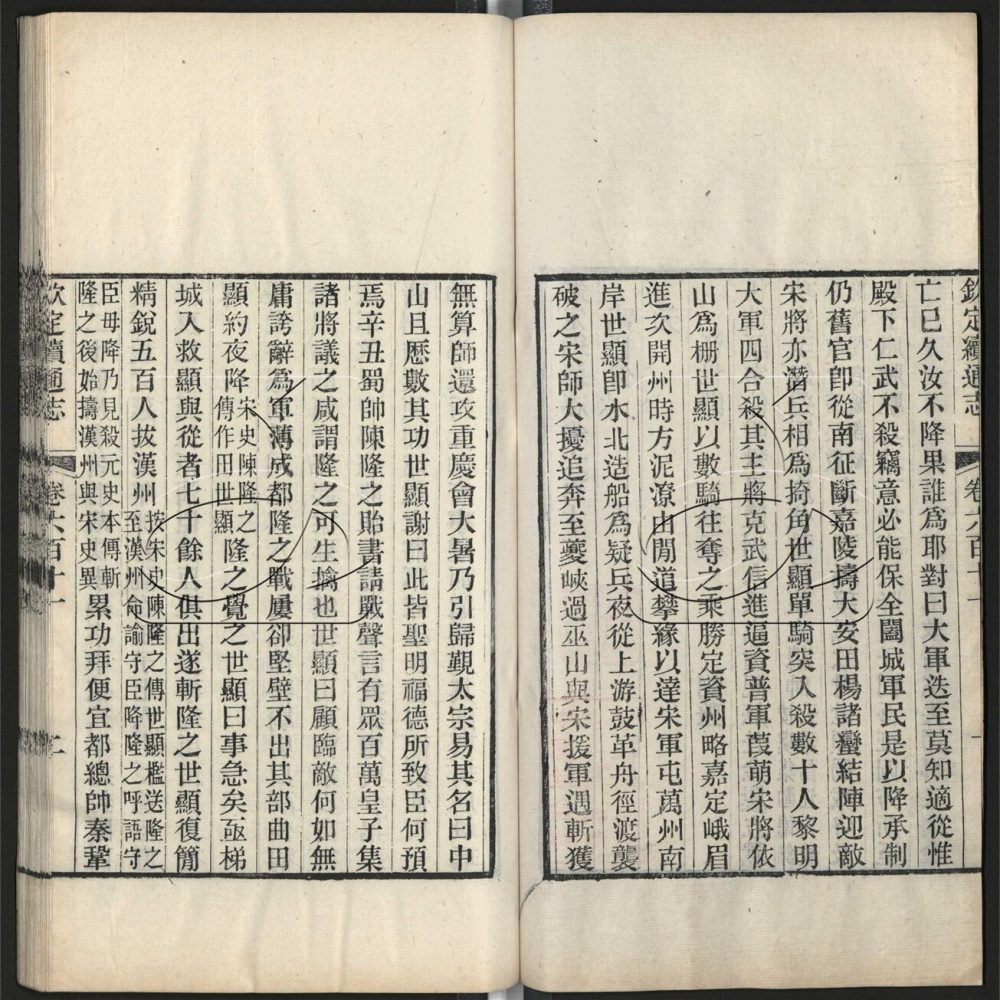 欽定續通志 卷六百十一 一
亡巳久汝不降果誰爲耶對曰大軍迭至莫知適從惟
殿下仁武不殺竊意必能保全闔城軍民是以降承制
仍舊官卽從南征斷嘉陵擣大安田楊諸蠻結陣迎敵
宋將亦潛兵相爲掎角世顯單騎突入殺數十人黎明
大軍四合殺其主將克武信進逼資普軍葭萌宋將依
山爲柵世顯以數騎往奪之乘勝定資州略嘉定峨眉
進次開州時方泥潦由閒道攀緣以達宋軍屯萬州南
岸世顯卽水北造船爲疑兵夜從上游鼓革舟徑渡襲
破之宋師大擾追奔至夔峽過巫山與宋援軍遇斬獲
無算師還攻重慶會大暑乃引歸覲太宗易其名曰中
山且歷數其功世顯謝曰此皆聖明福德所致臣何預
焉辛丑蜀帥陳隆之貽書請戰聲言有眾百萬皇子集
諸將議之咸謂隆之可生擒也世顯曰顧臨敵何如無
庸誇辭爲軍薄成都隆之戰屢卻堅壁不出其部曲田
顯約夜降宋史陳隆之傳作田世顯隆之覺之世顯曰事急矣亟梯
城入救顯與從者七十餘人俱出遂斬隆之世顯復簡
精銳五百人拔漢州按宋史陳隆之傳世顯檻送隆之至漢州命諭守臣降隆之呼語守
臣毋降乃見殺元史本傳斬隆之後始擣漢州與宋史異累功拜便宜都總帥秦鞏
欽定續通志 卷六百十一 二